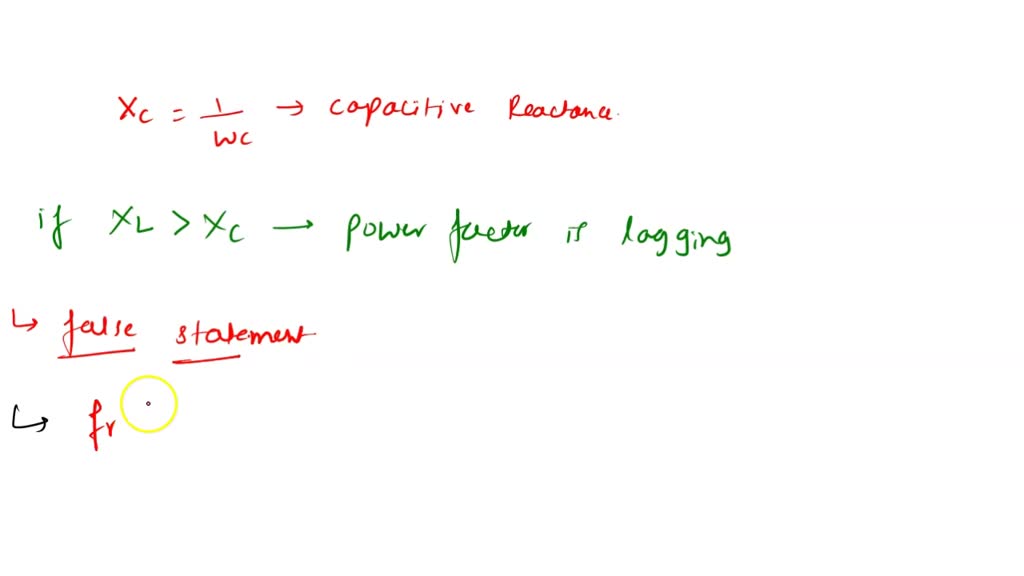 Xc = 1/wc → capacitive Reactance.
if XL > Xc → power factor is lagging
↳ false statement
↳ fr